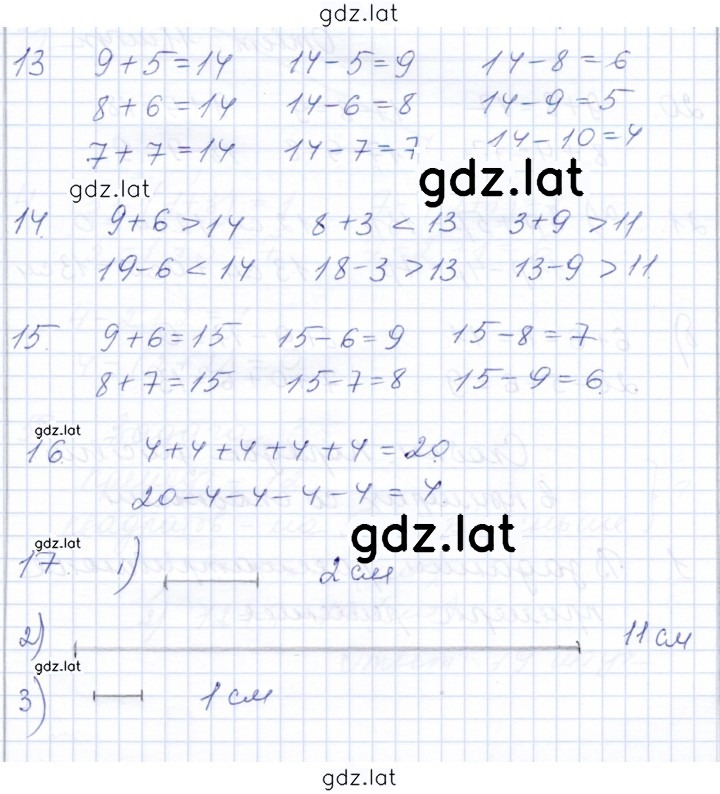 gdz.lat
13 9+5=14 14-5=9 14-8=6
8+6=14 14-6=8 14-9=5
7+7=14 14-7=7 14-10=4
gdz.lat gdz.lat
14. 9+6>14 8+3<13 3+9>11
19-6<14 18-3>13 13-9>11
15. 9+6=15 15-6=9 15-8=7
8+7=15 15-7=8 15-9=6.
gdz.lat
16. 4+4+4+4+4=20.
20-4-4-4-4=4.
gdz.lat gdz.lat
17. 1) 2 см
2) 11 см
gdz.lat
3) 1 см
gdz.lat